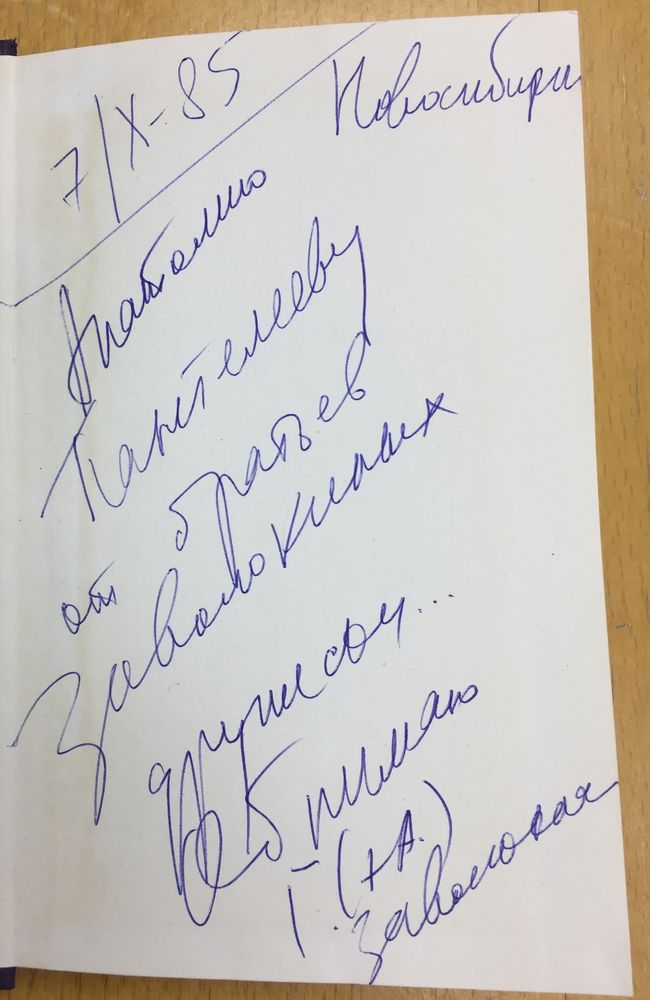 7/X-85
Новосибирск
Анатолию
Пантелееву
от братьев
Заволокиных
дружески...
Обнимаю
Г. (+А.)
Заволокин